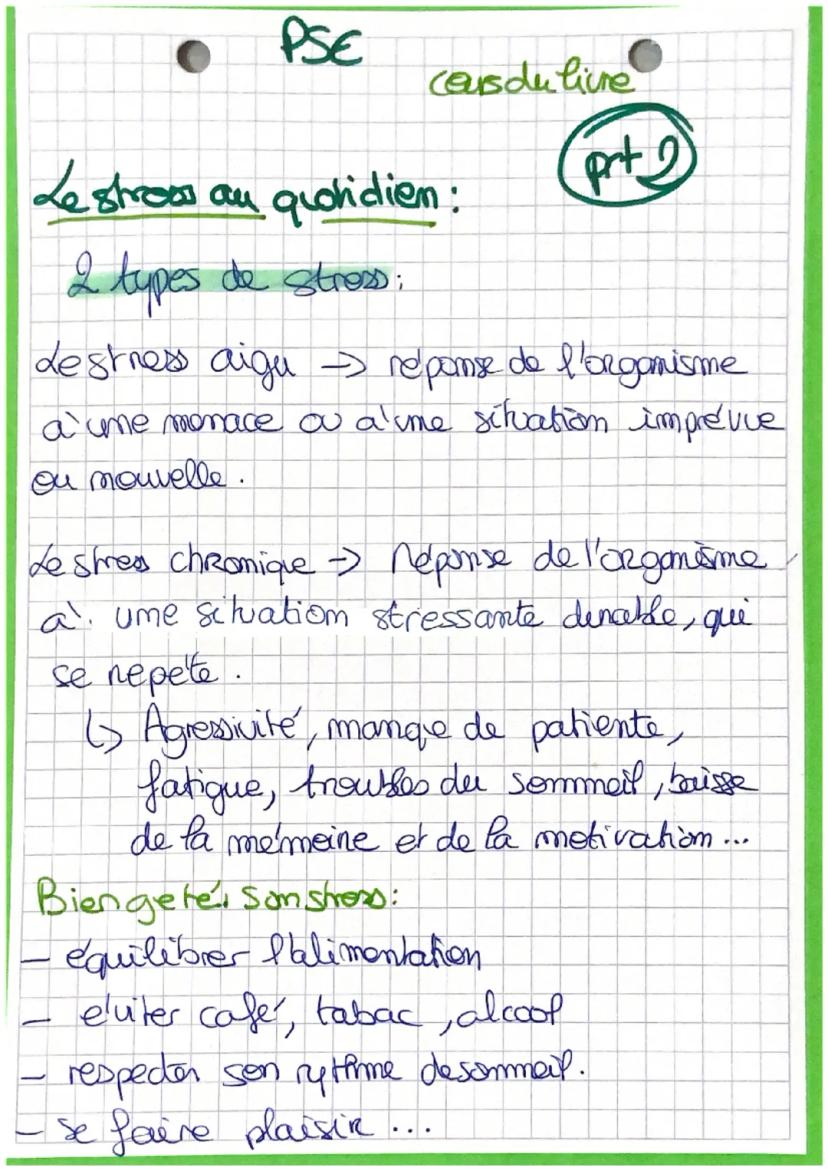 PSE
cours du livre
prt 2
Le stress au quotidien :
2 types de stress :
Le stress aigu -> réponse de l'organisme
à une menace ou à une situation imprévue
ou nouvelle.
Le stress chronique -> Réponse de l'organisme
à une situation stressante durable, qui
se repète.
↳ Agressivité, manque de patiente,
fatigue, troubles du sommeil, baisse
de la mémoire et de la motivation...
Bien geré son stress :
- équilibrer l'alimentation
- éviter café, tabac, alcool
- respecter son rythme de sommeil.
- se faire plaisir ...